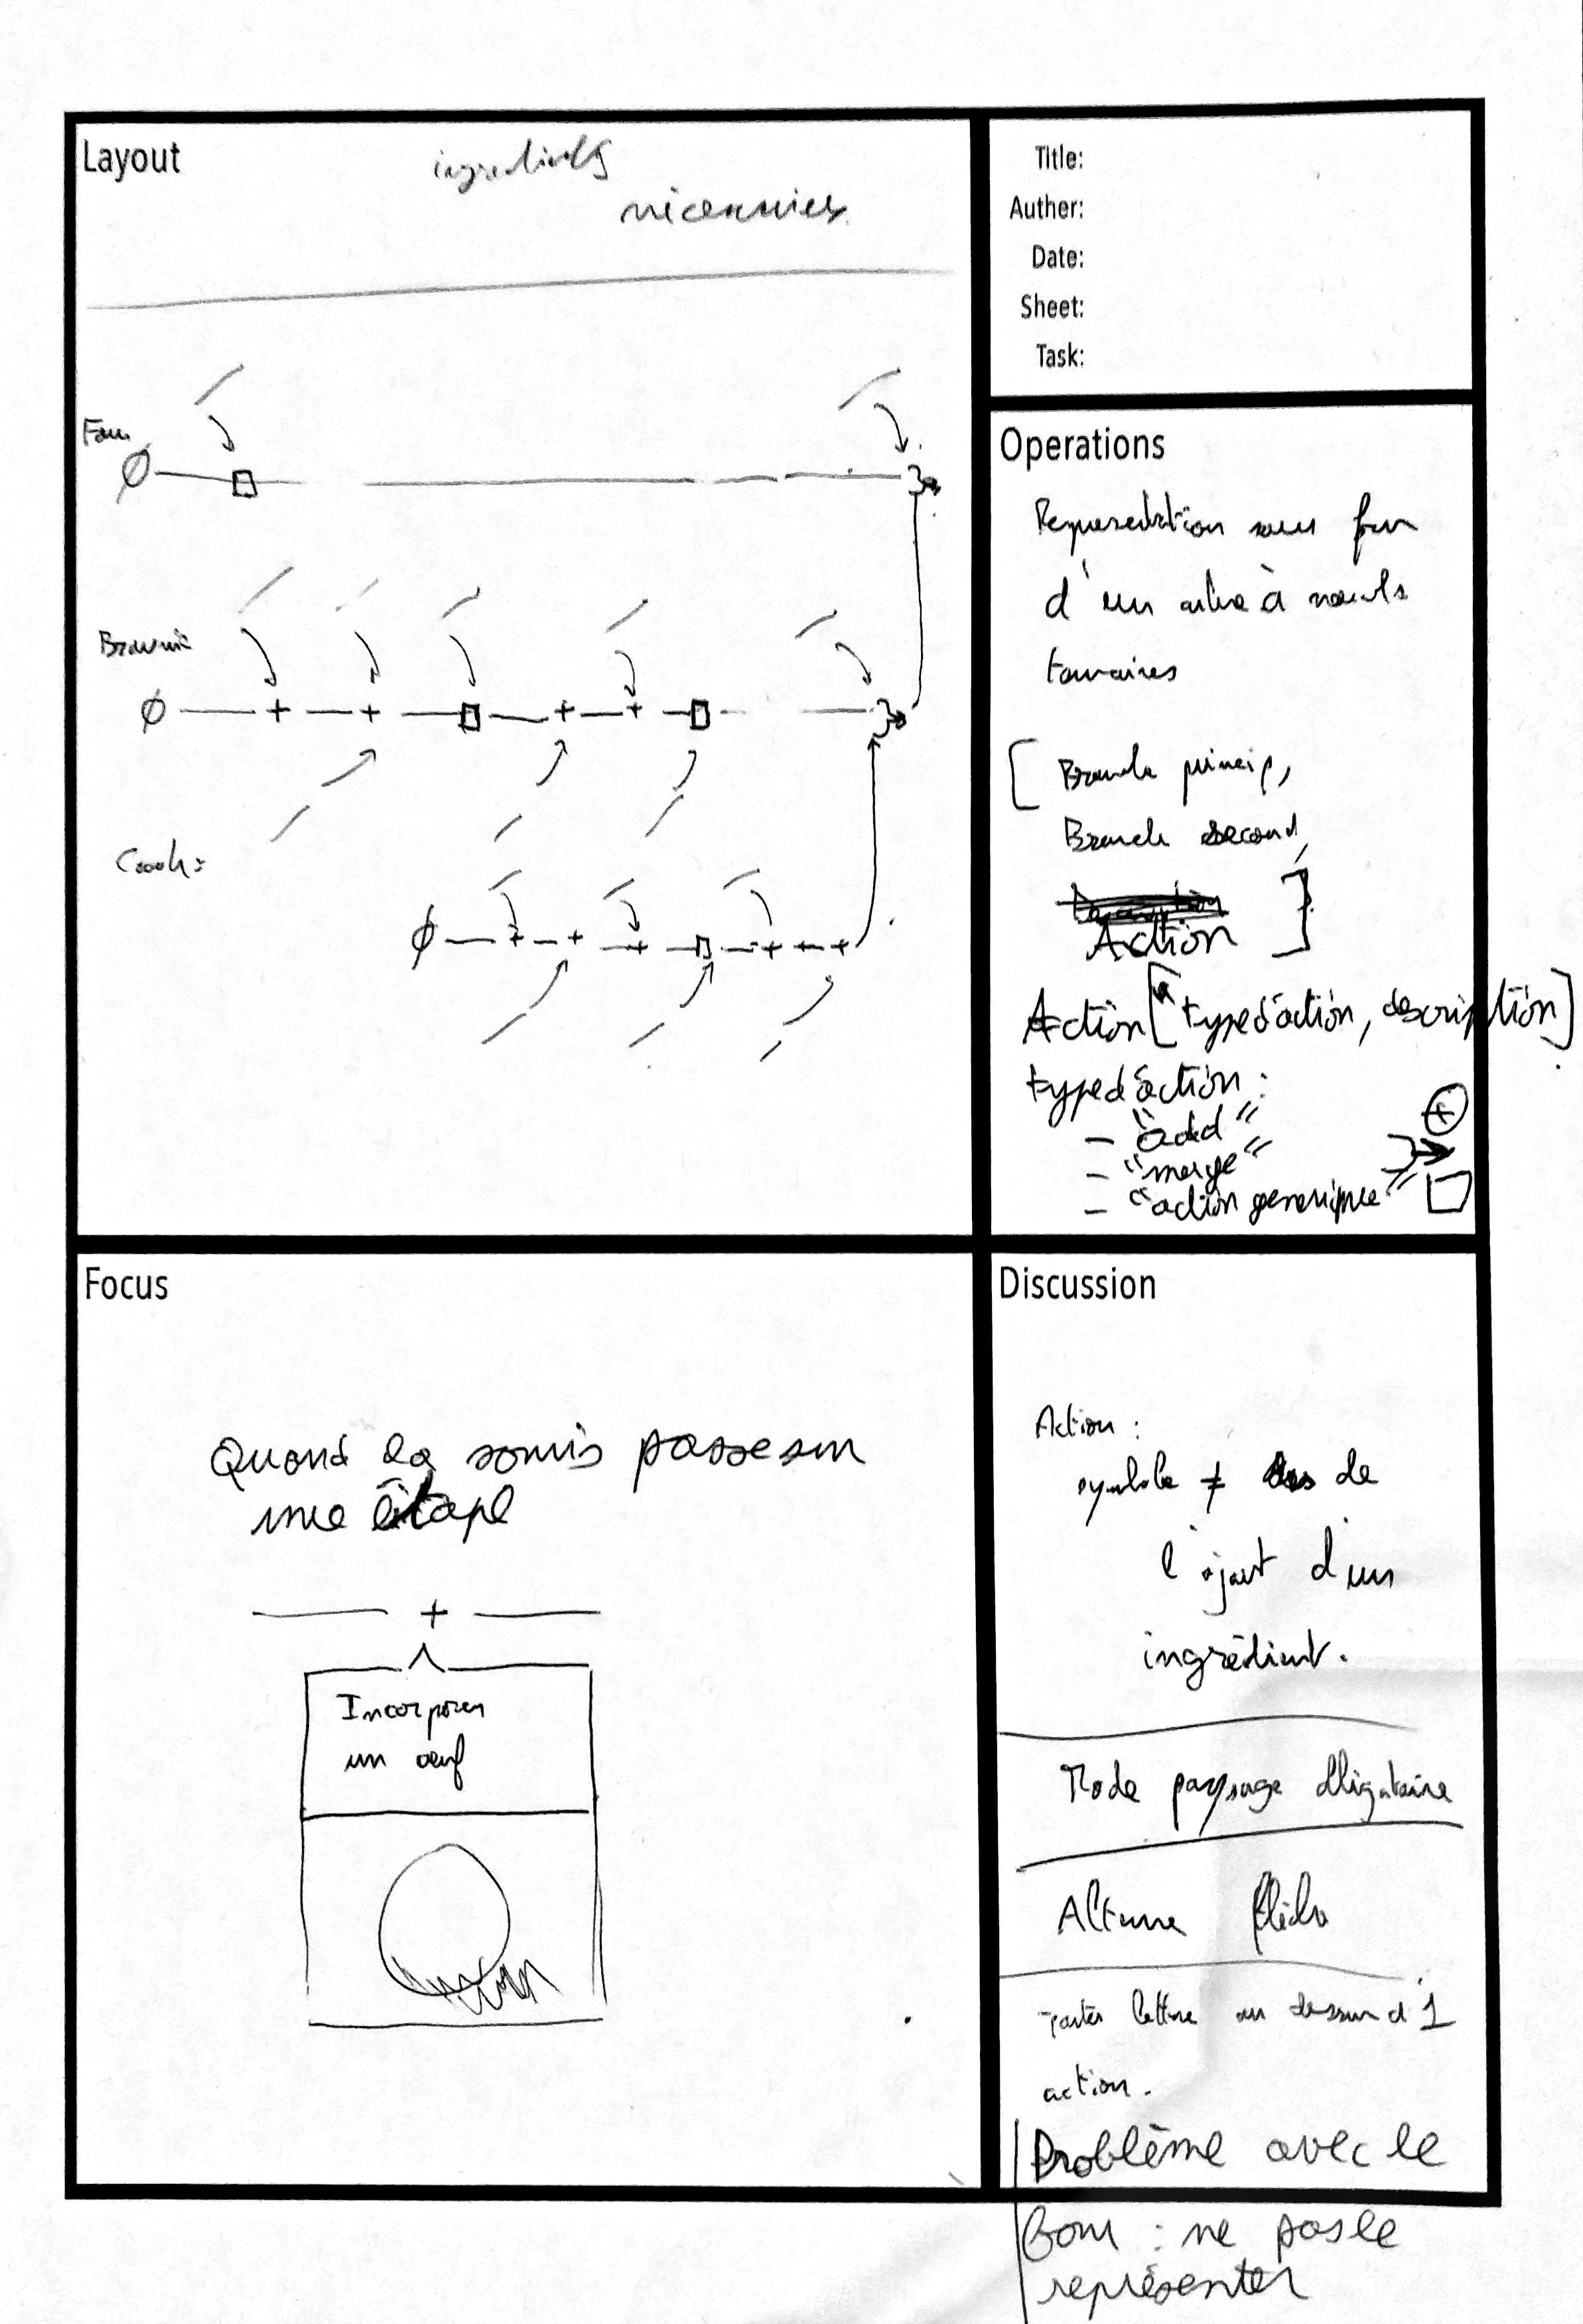 Layout
ingrédients
nécessaires
Four
Ø
Brownie
Ø + + + +
Cook
Ø + + + + +
Title:
Auther:
Date:
Sheet:
Task:
Operations
Representation sous
d'un arbre à nœuds
[ Branche princip,
Branche second,
Action ]
Action [typed'action, description]
typed'action :
- "add" +
- "merge"
- "action generique"
Focus
Quand la souris passe sur
une étape
+
Incorporer
un oeuf
Discussion
Action :
symbole ≠ de
l'ajout d'un
ingrédient.
Mode paysage obligatoire
Alterne
lettre au dessus d'1
action.
Problème avec le
four : ne pas le
représenter